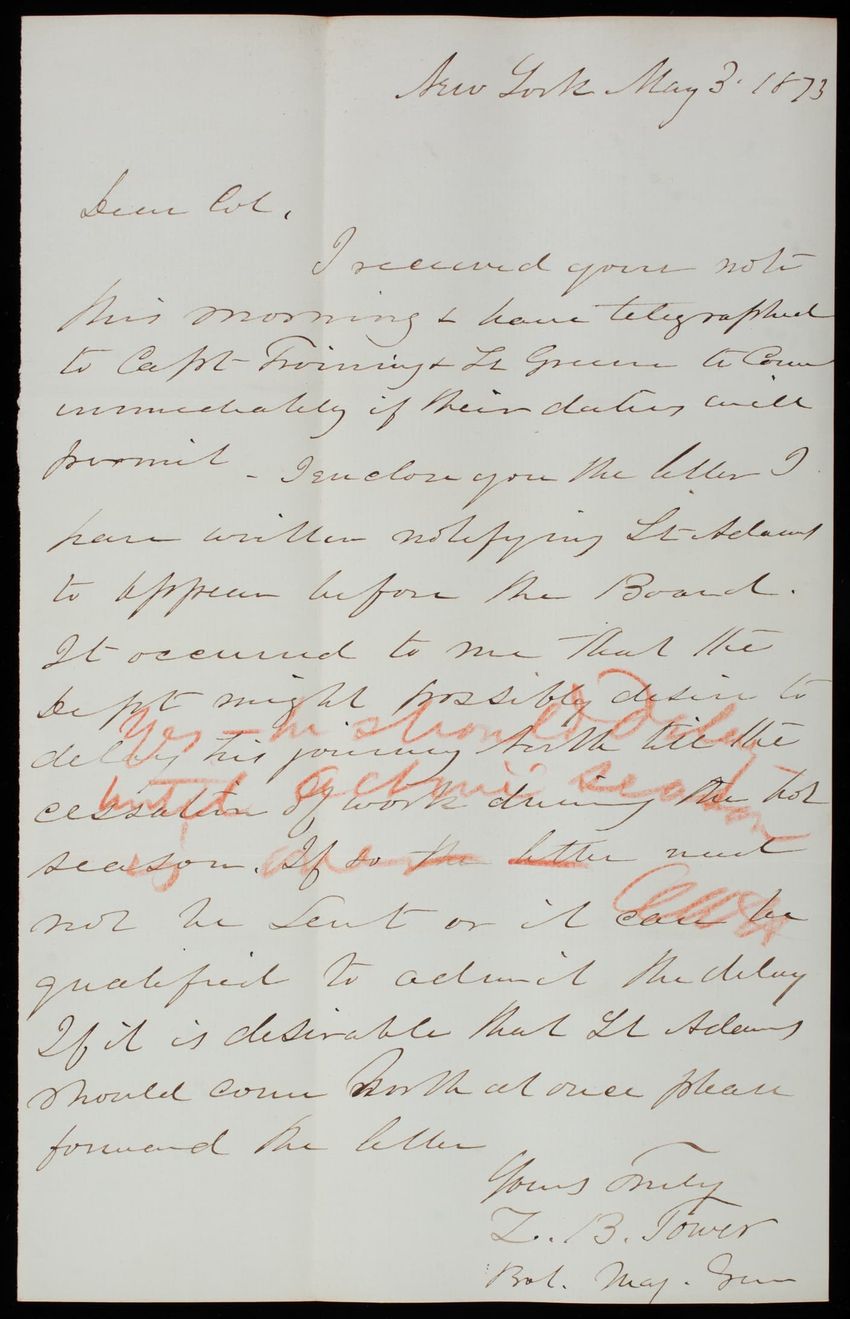 New York May 3. 1873
Dear Col,
I received your note
this morning & have telegraphed
to Capt Twining & Lt Greene to Come
immediately if their duties will
permit - I enclose you the letter I
have written notifying Lt Adams
to appear before the Board.
It occurred to me that the
Dept might possibly desire to
delay his journey North till the
cessation of work during the hot
season. If so the letter need
not be sent or it can be
qualified to admit the delay
If it is desirable that Lt Adams
should come North at once please
forward the letter
Yours Truly
Z. B. Tower
Bvt. Maj. Gen
Yes - he should delay
until active season
is over